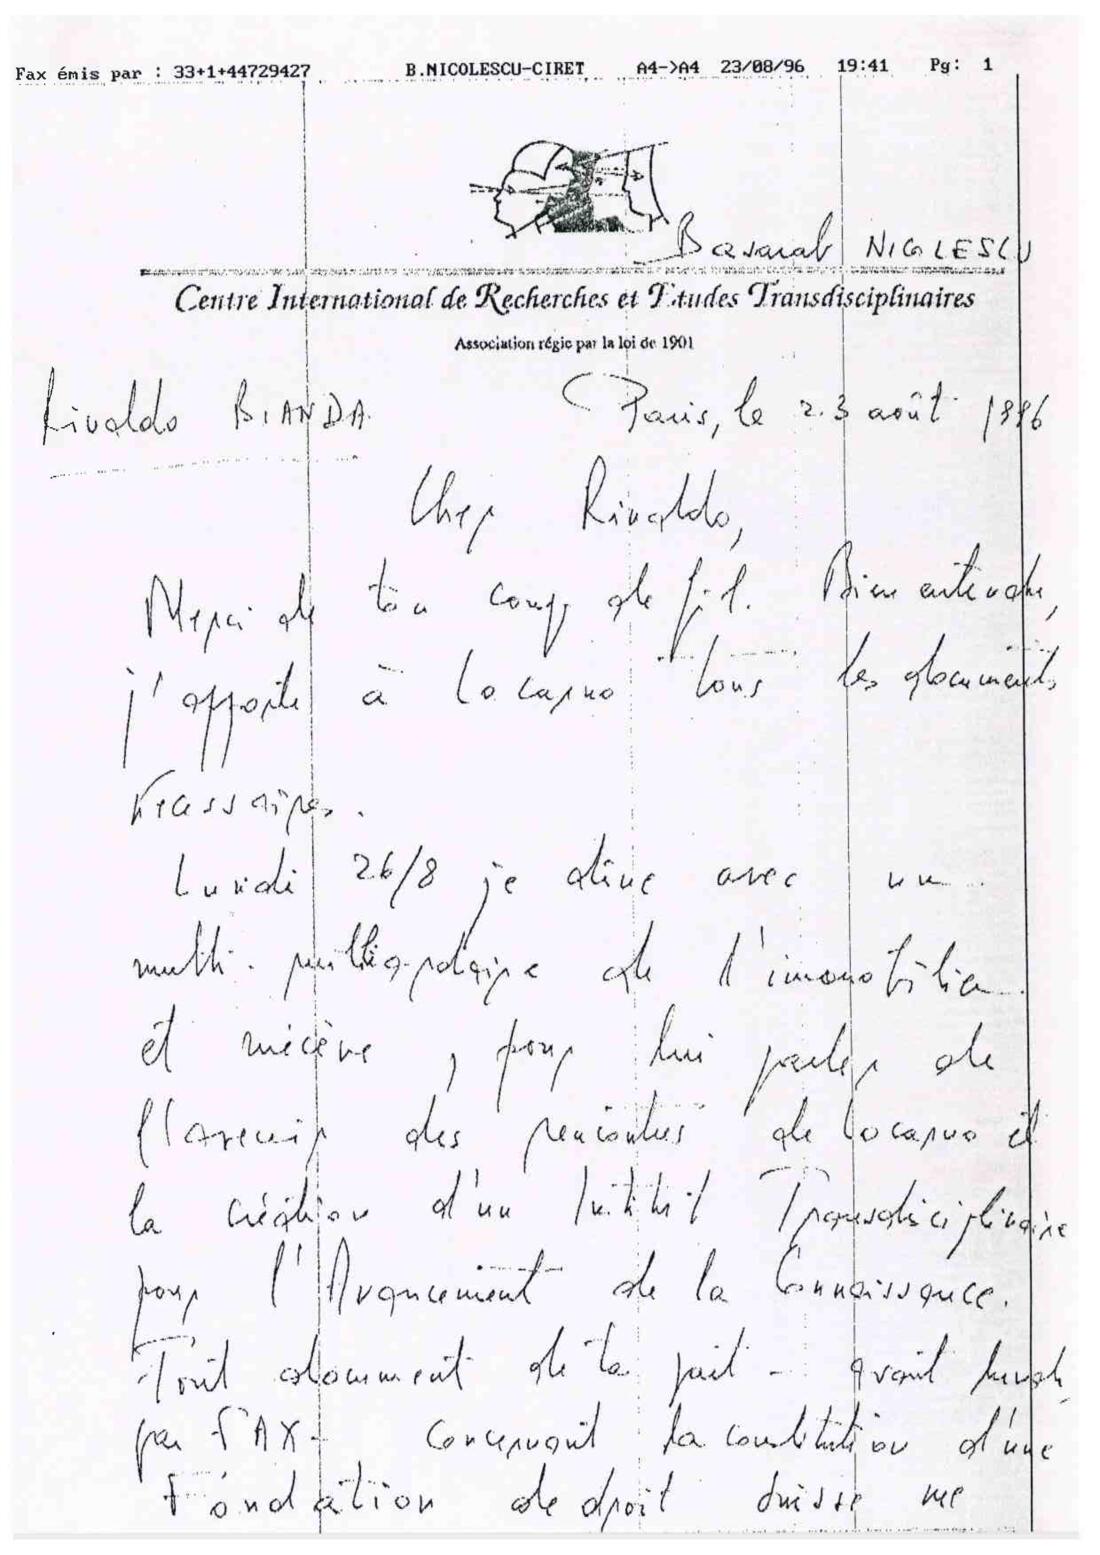 Fax émis par : 33+1+44729427 B.NICOLESCU-CIRET A4->A4 23/08/96 19:41 Pg: 1
Basarab NICOLESCU
Centre International de Recherches et Études Transdisciplinaires
Association régie par la loi de 1901
Rivaldo BIANDA
Paris, le 23 août 1996
Cher Rivaldo,
Merci de ton coup de fil. Bien entendu,
j'apporte à Locarno tous les documents
nécessaires.
Lundi 26/8 je dîne avec un
multi-milliardaire de l'immobilier
et mécène, pour lui parler de
l'avenir des rencontres de Locarno et
la création d'un Institut Transdisciplinaire
pour l'Avancement de la Connaissance.
Tout document de ta part - avant lundi,
par FAX - concernant la constitution d'une
Fondation de droit suisse me